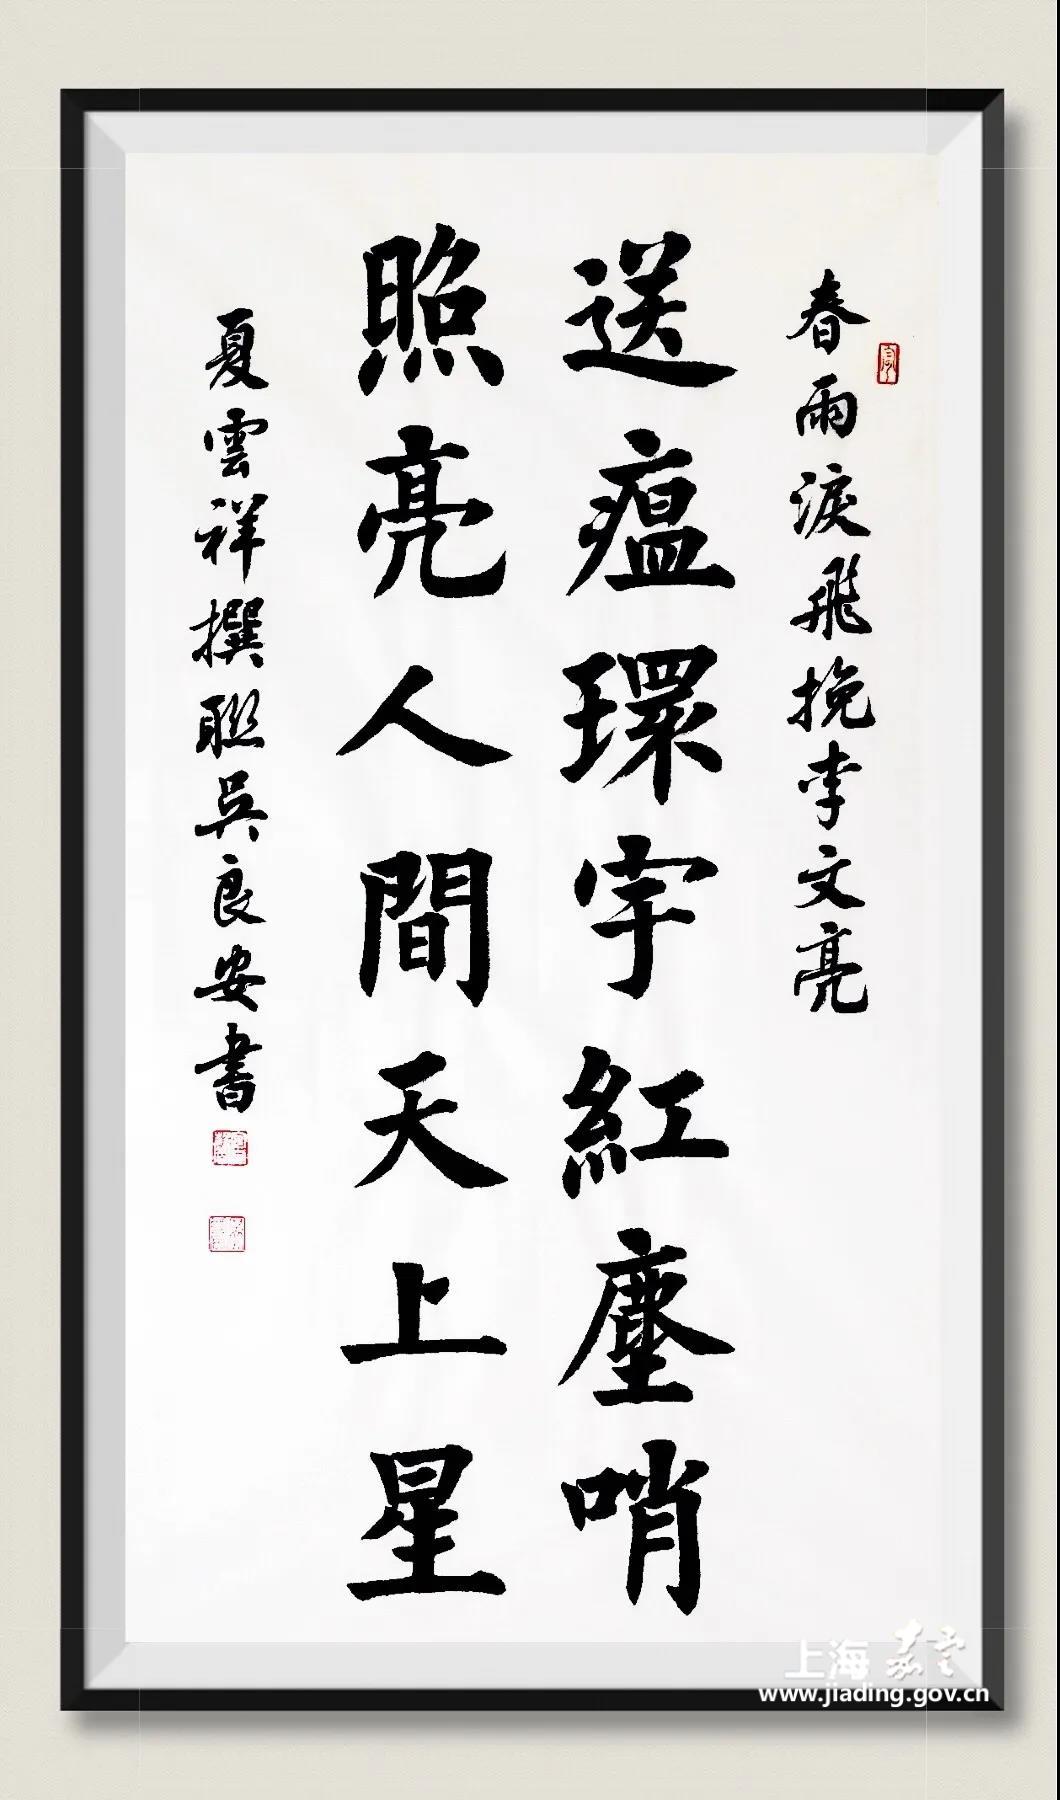 春雨淚飛挽李文亮
送瘟環宇紅塵哨
照亮人間天上星
夏雲祥撰聯吴良安書
上海嘉定
www.jiading.gov.cn